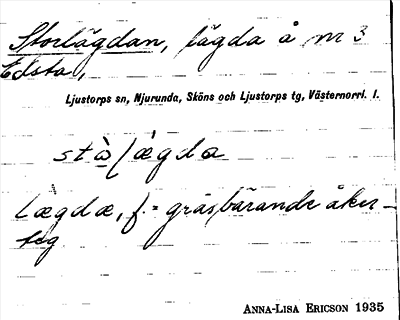 Storlägdan, lägda å nr 3
Edsta,
Ljustorps sn, Njurunda, Sköns och Ljustorps tg, Västernorrl. l.
stàlægda
Lægdæ, f. = gräsbärande åker-
teg
ANNA-LISA ERICSON 1935